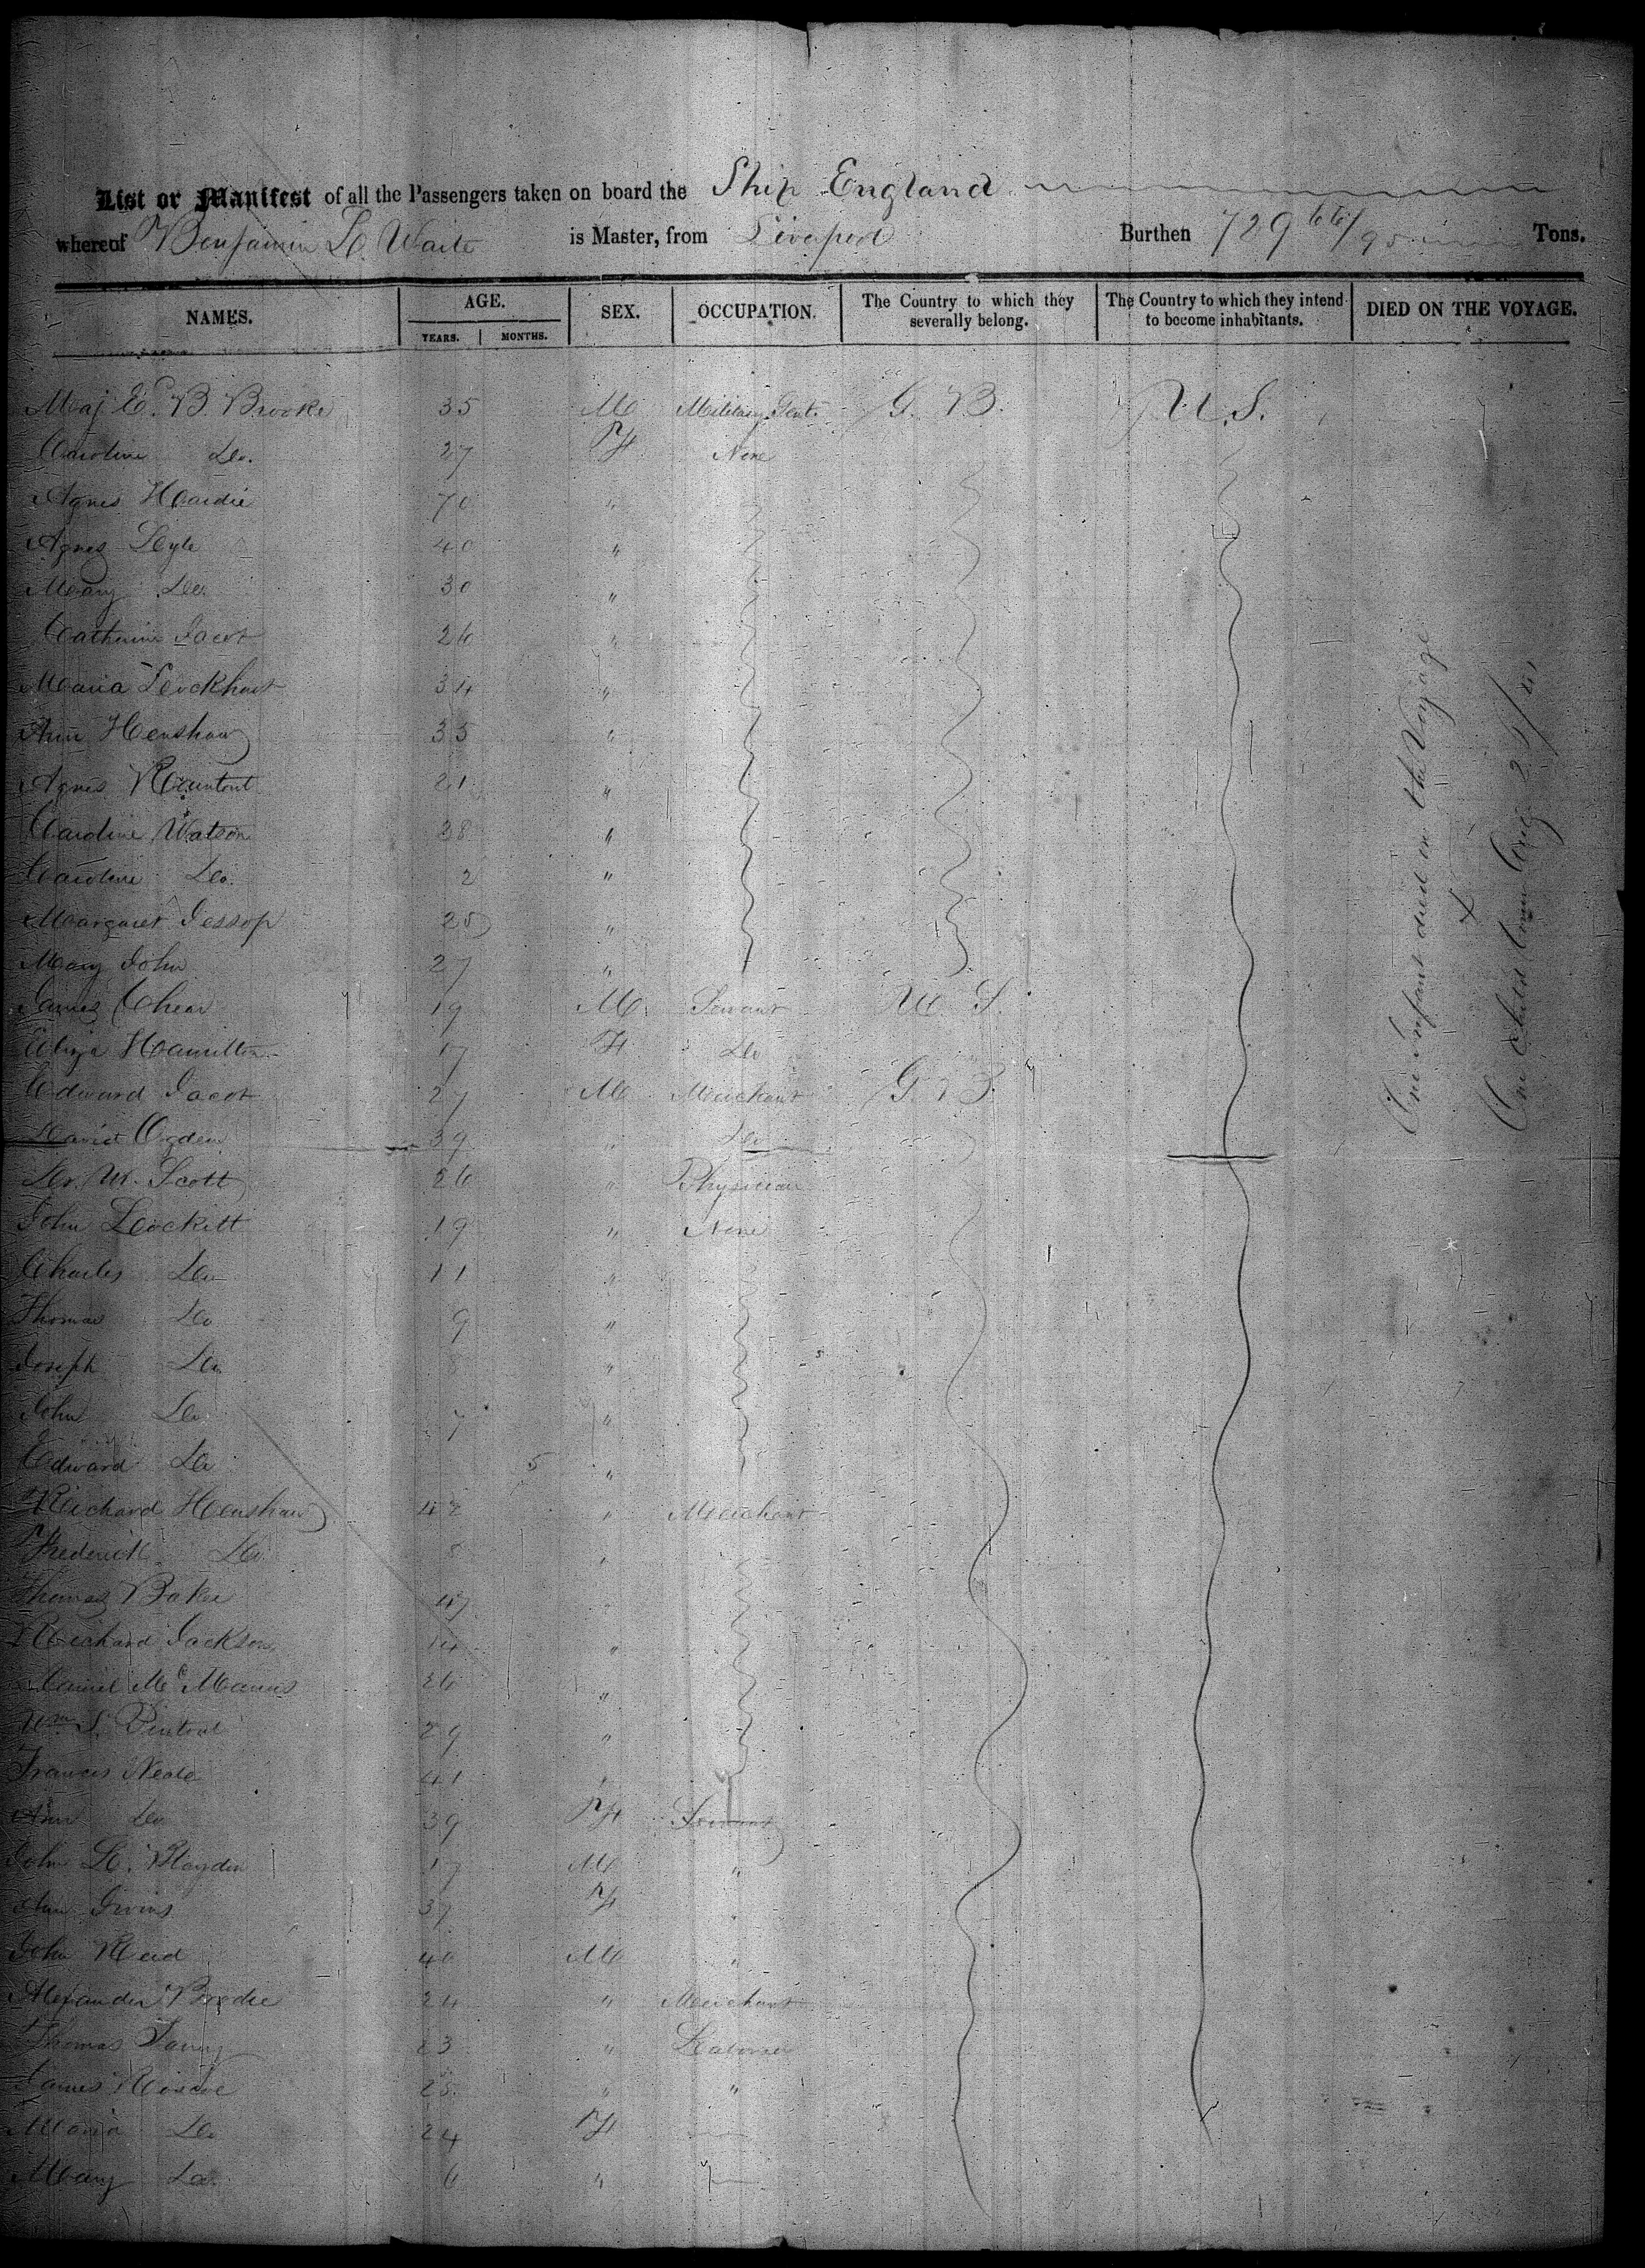 List or Manifest of all the Passengers taken on board the Ship England
whereof Benjamin L. Waite is Master, from Liverpool Burthen 729 66/95 Tons.
NAMES. AGE. SEX. OCCUPATION. The Country to which they severally belong. The Country to which they intend to become inhabitants. DIED ON THE VOYAGE.
YEARS. MONTHS.
Maj E. B. Brooke 35 M Military Gent. G. B. U. S.
Caroline Do. 27 F None
Agnes Hardie 70 "
Agnes Lyle 40 "
Mary Do. 30 "
Catherine Jacot 26 "
Maria Lockhart 34 "
Ann Henshaw 35 "
Agnes 21 "
Caroline Watson 28 "
Caroline Do. 2 "
Margaret Jessop 25 "
Mary John 27 "
James Chear 19 M Servant U. S.
Eliza Hamilton 17 F Do
Edward Jacot 27 M Merchant G. B.
David Ogden 39 " Do
Dr. W. Scott 26 " Physician
John Lockitt 19 " None
Charles Do 11 "
Thomas Do 9 "
Joseph Do 8 "
John Do 7 "
Edward Do 5 "
Richard Henshaw 42 " Merchant
Frederick Do 8 "
Thomas Baker 47 "
Richard Jackson 14 "
Daniel McManus 26 "
Wm S. 29 "
Francis Neale 41 "
Ann Do 39 F Servant
John L. Blaydon 17 M "
Ann Givins 37 F "
John Reid 40 M "
Alexander Brodie 24 " Merchant
Thomas 23 " Laborer
James Roscoe 25 " "
Maria Do 24 F
Mary Do. 6 "
One infant died on the Voyage
One child